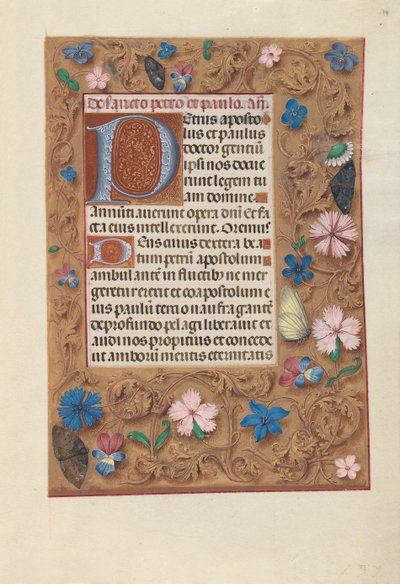 De sancto petro et paulo. añ.
Petrus aposto
lus et paulus
doctor gentiū
ipsi nos docue
runt legem tu
am domine.
Annūtiaverunt opera dñi et fa
cta eius intellexerunt. Oremus
Deus cuius dextera bea
tum petrū apostolum
ambulantē in fluctibꝰ ne mer
geretur erexit et coapostolum e
ius paulū tertio naufragante
de profundo pelagi liberavit ex
audi nos propitius et concede
ut amborū meritis eternitatis